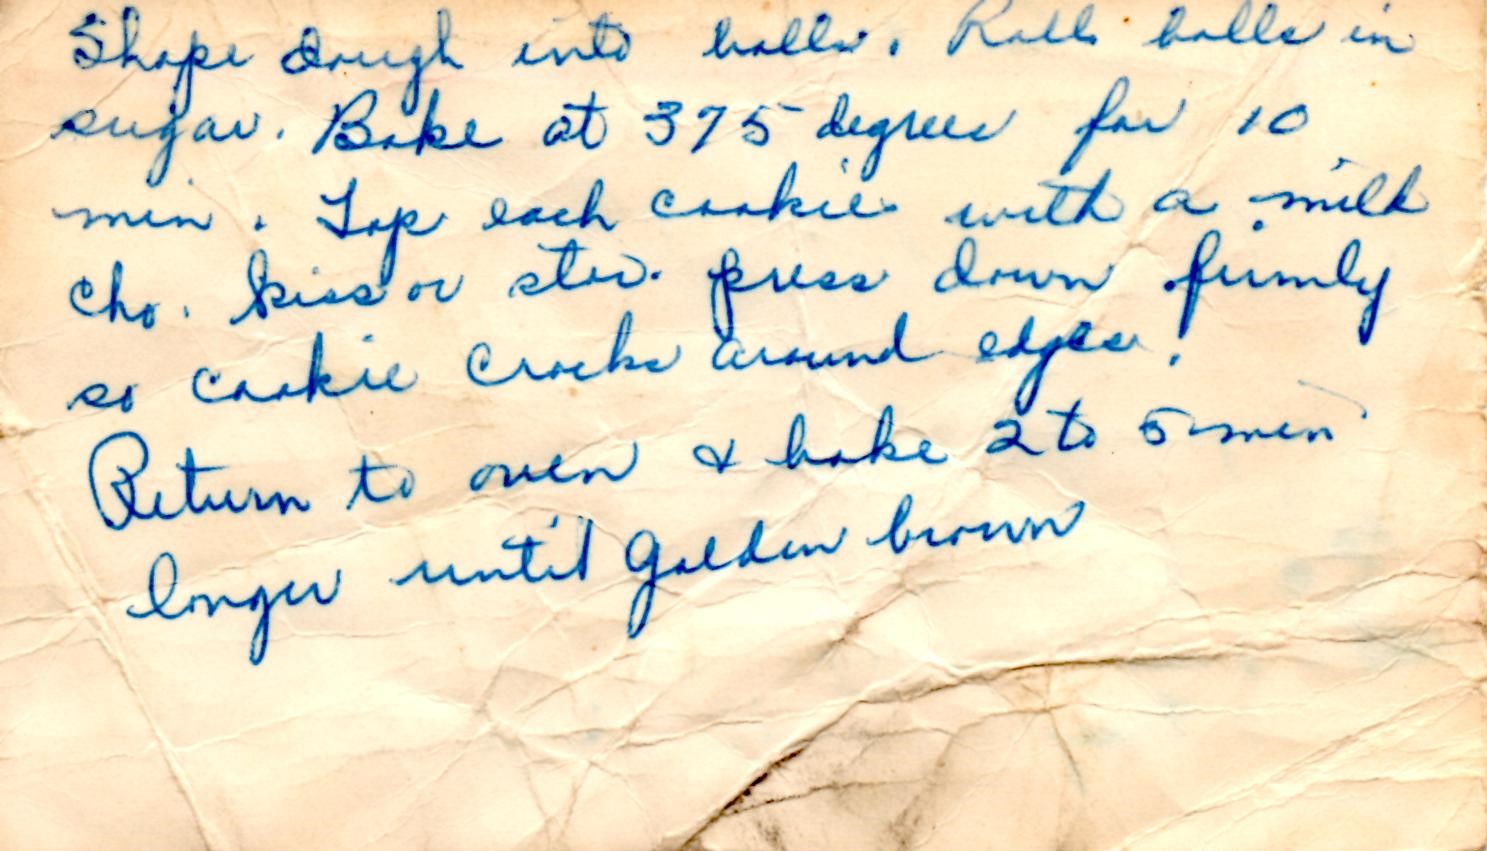 Shape dough into balls. Roll balls in
sugar. Bake at 375 degrees for 10
min. Top each cookie with a milk
cho. kiss or star. press down firmly
so cookie cracks around edges.
Return to oven & bake 2 to 5 min
longer until golden brown